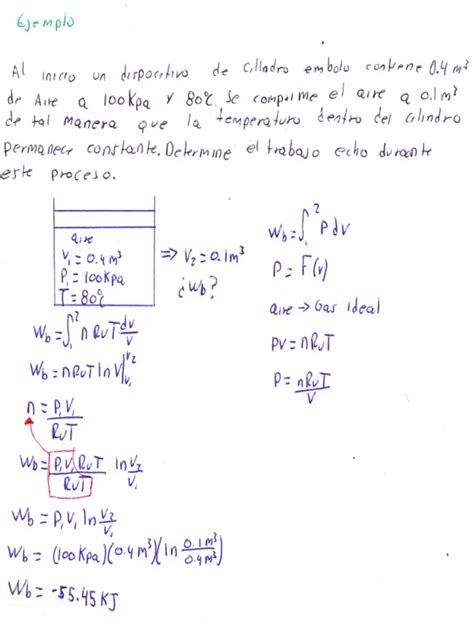 Ejemplo
Al inicio un dispocitivo de cilindro embolo contiene 0.4 m³
de Aire a 100Kpa y 80°c. Se comprime el aire a 0.1m³
de tal manera que la temperatura dentro del cilindro
permanece constante. Determine el trabajo echo durante
este proceso.
aire
V₁ = 0.4m³
P₁ = 100Kpa
T = 80°c
⇒ V₂ = 0.1m³
¿Wb?
Wb = ∫₁² P dv
P = F(v)
aire → Gas ideal
PV = nRuT
P = nRuT/V
Wb = ∫₁² n RuT dv/V
Wb = nRuT ln V|V₂ V₁
n = P₁V₁/RuT
Wb = P₁V₁RuT/RuT ln V₂/V₁
Wb = P₁V₁ ln V₂/V₁
Wb = (100Kpa)(0.4m³)(ln 0.1m³/0.4m³)
Wb = -55.45 KJ